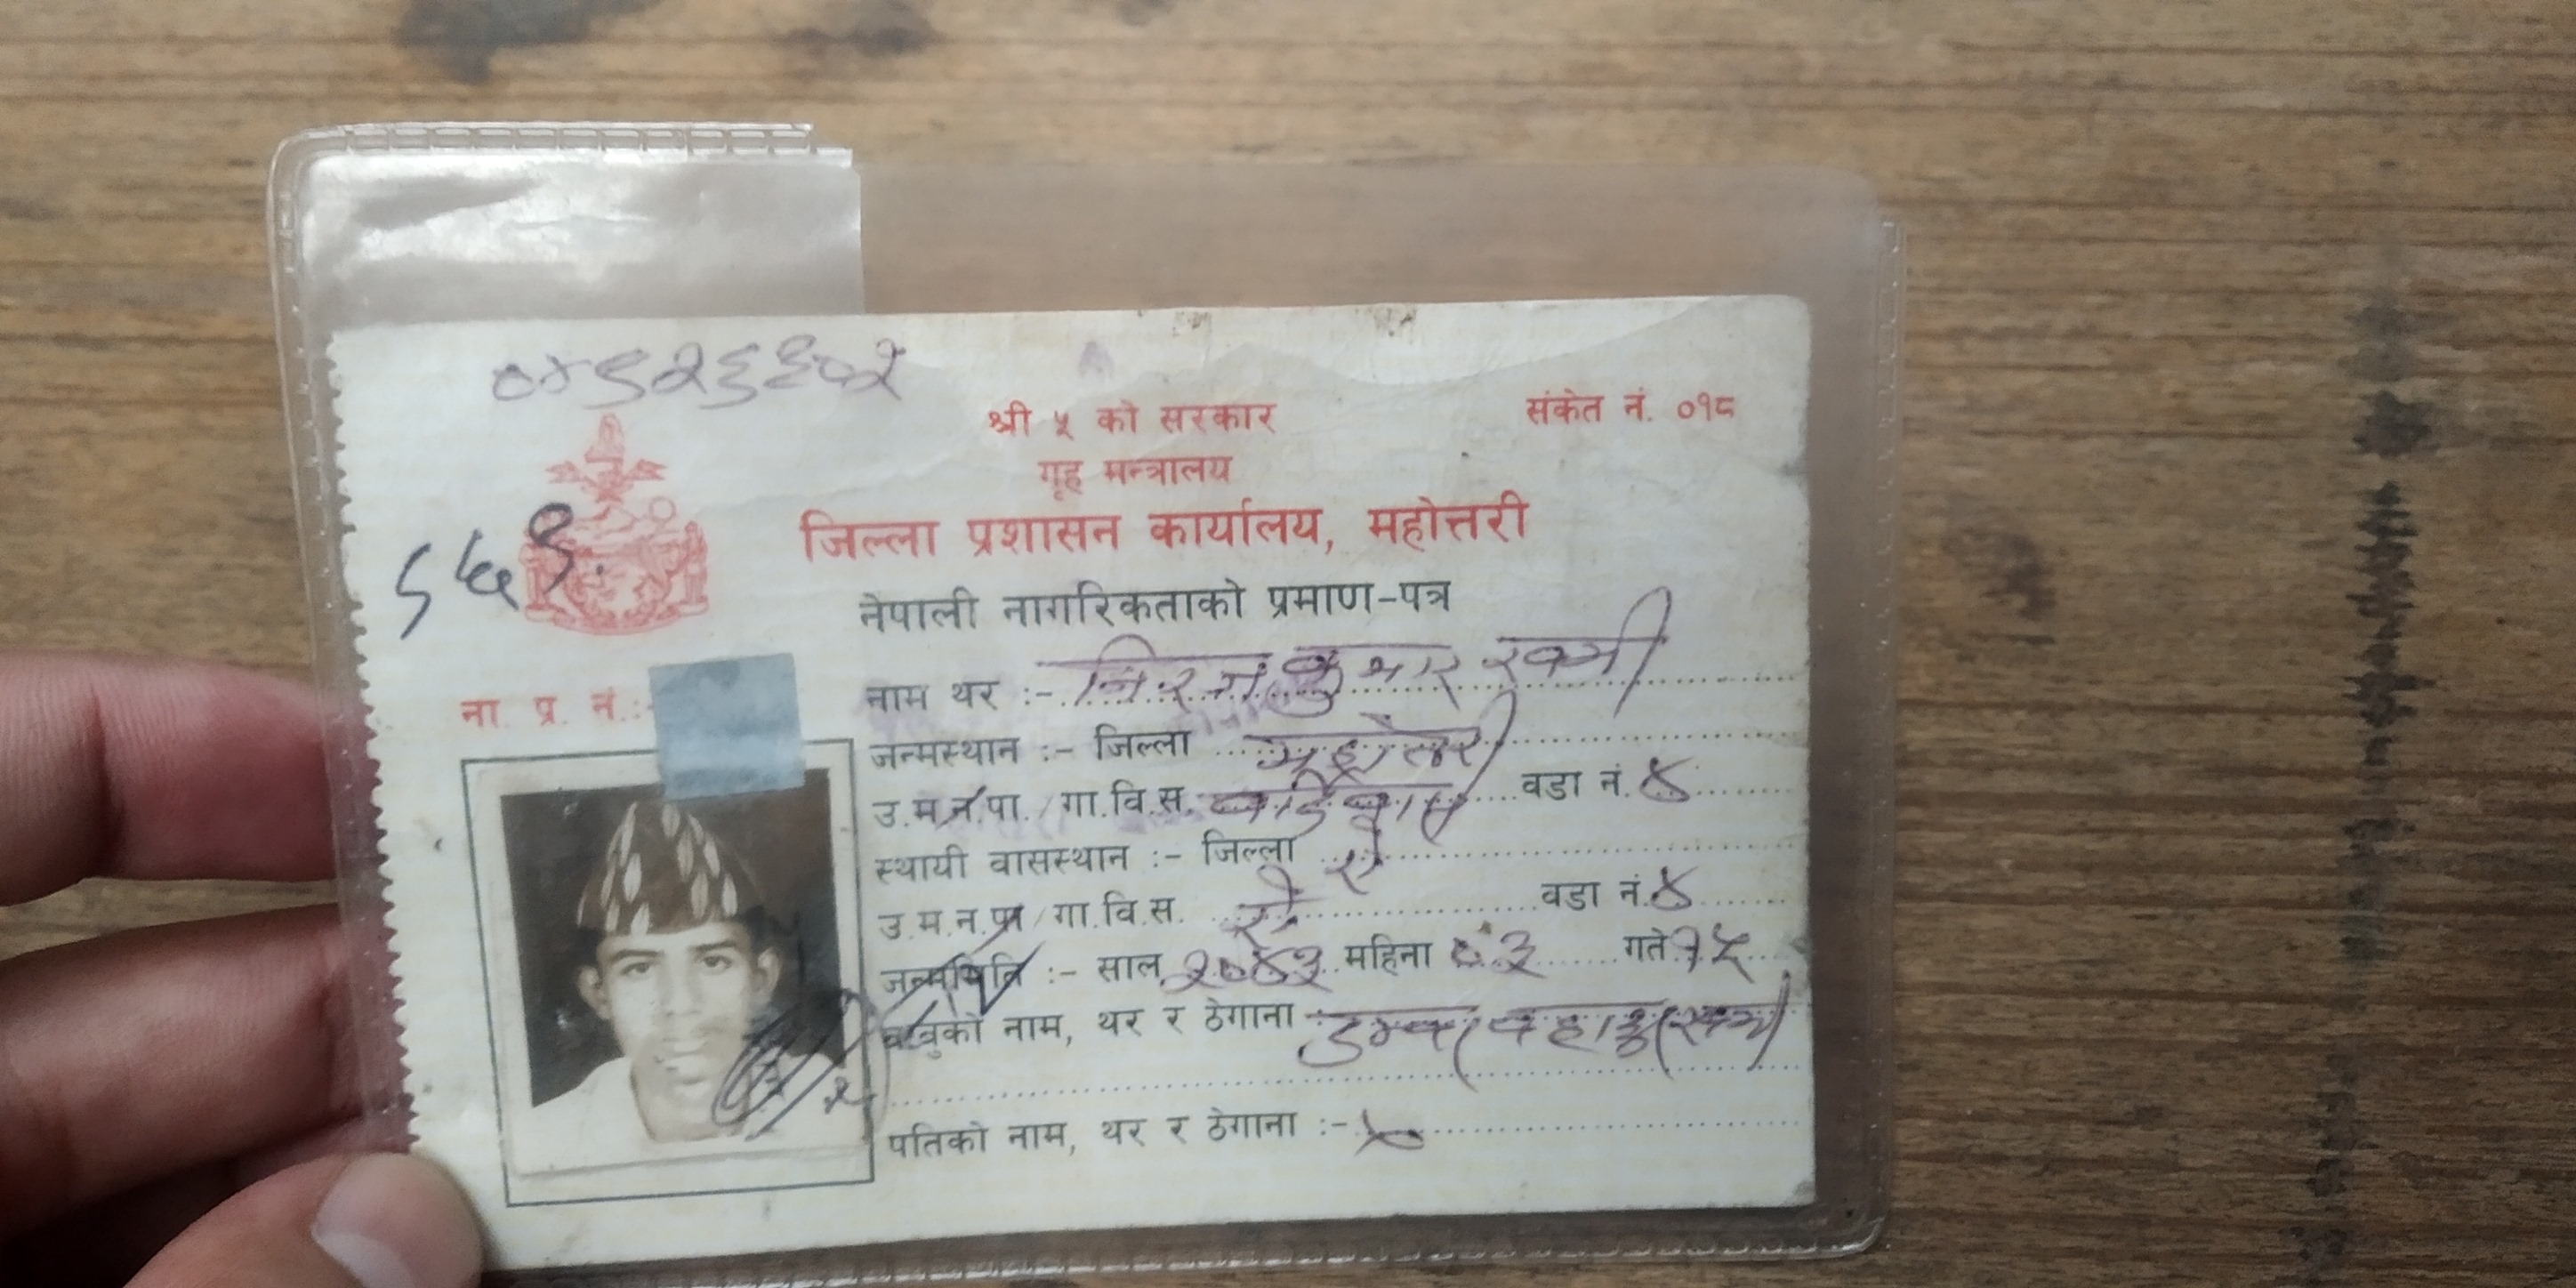 ०४५२६६०२
श्री ५ को सरकार
संकेत नं. ०१८
गृह मन्त्रालय
जिल्ला प्रशासन कार्यालय, महोत्तरी
नेपाली नागरिकताको प्रमाण-पत्र
ना. प्र. नं.:-
नाम थर :- कुमार
जन्मस्थान :- जिल्ला महोत्तरी
उ.म.न.पा./गा.वि.स. बर्दिबास वडा नं. ४
स्थायी वासस्थान :- जिल्ला ऐ
उ.म.न.पा/गा.वि.स. ऐ वडा नं. ४
जन्ममिति :- साल २०४३ महिना ०३ गते १५
बाबुको नाम, थर र ठेगाना डम्बर बहादुर
पतिको नाम, थर र ठेगाना :- ×